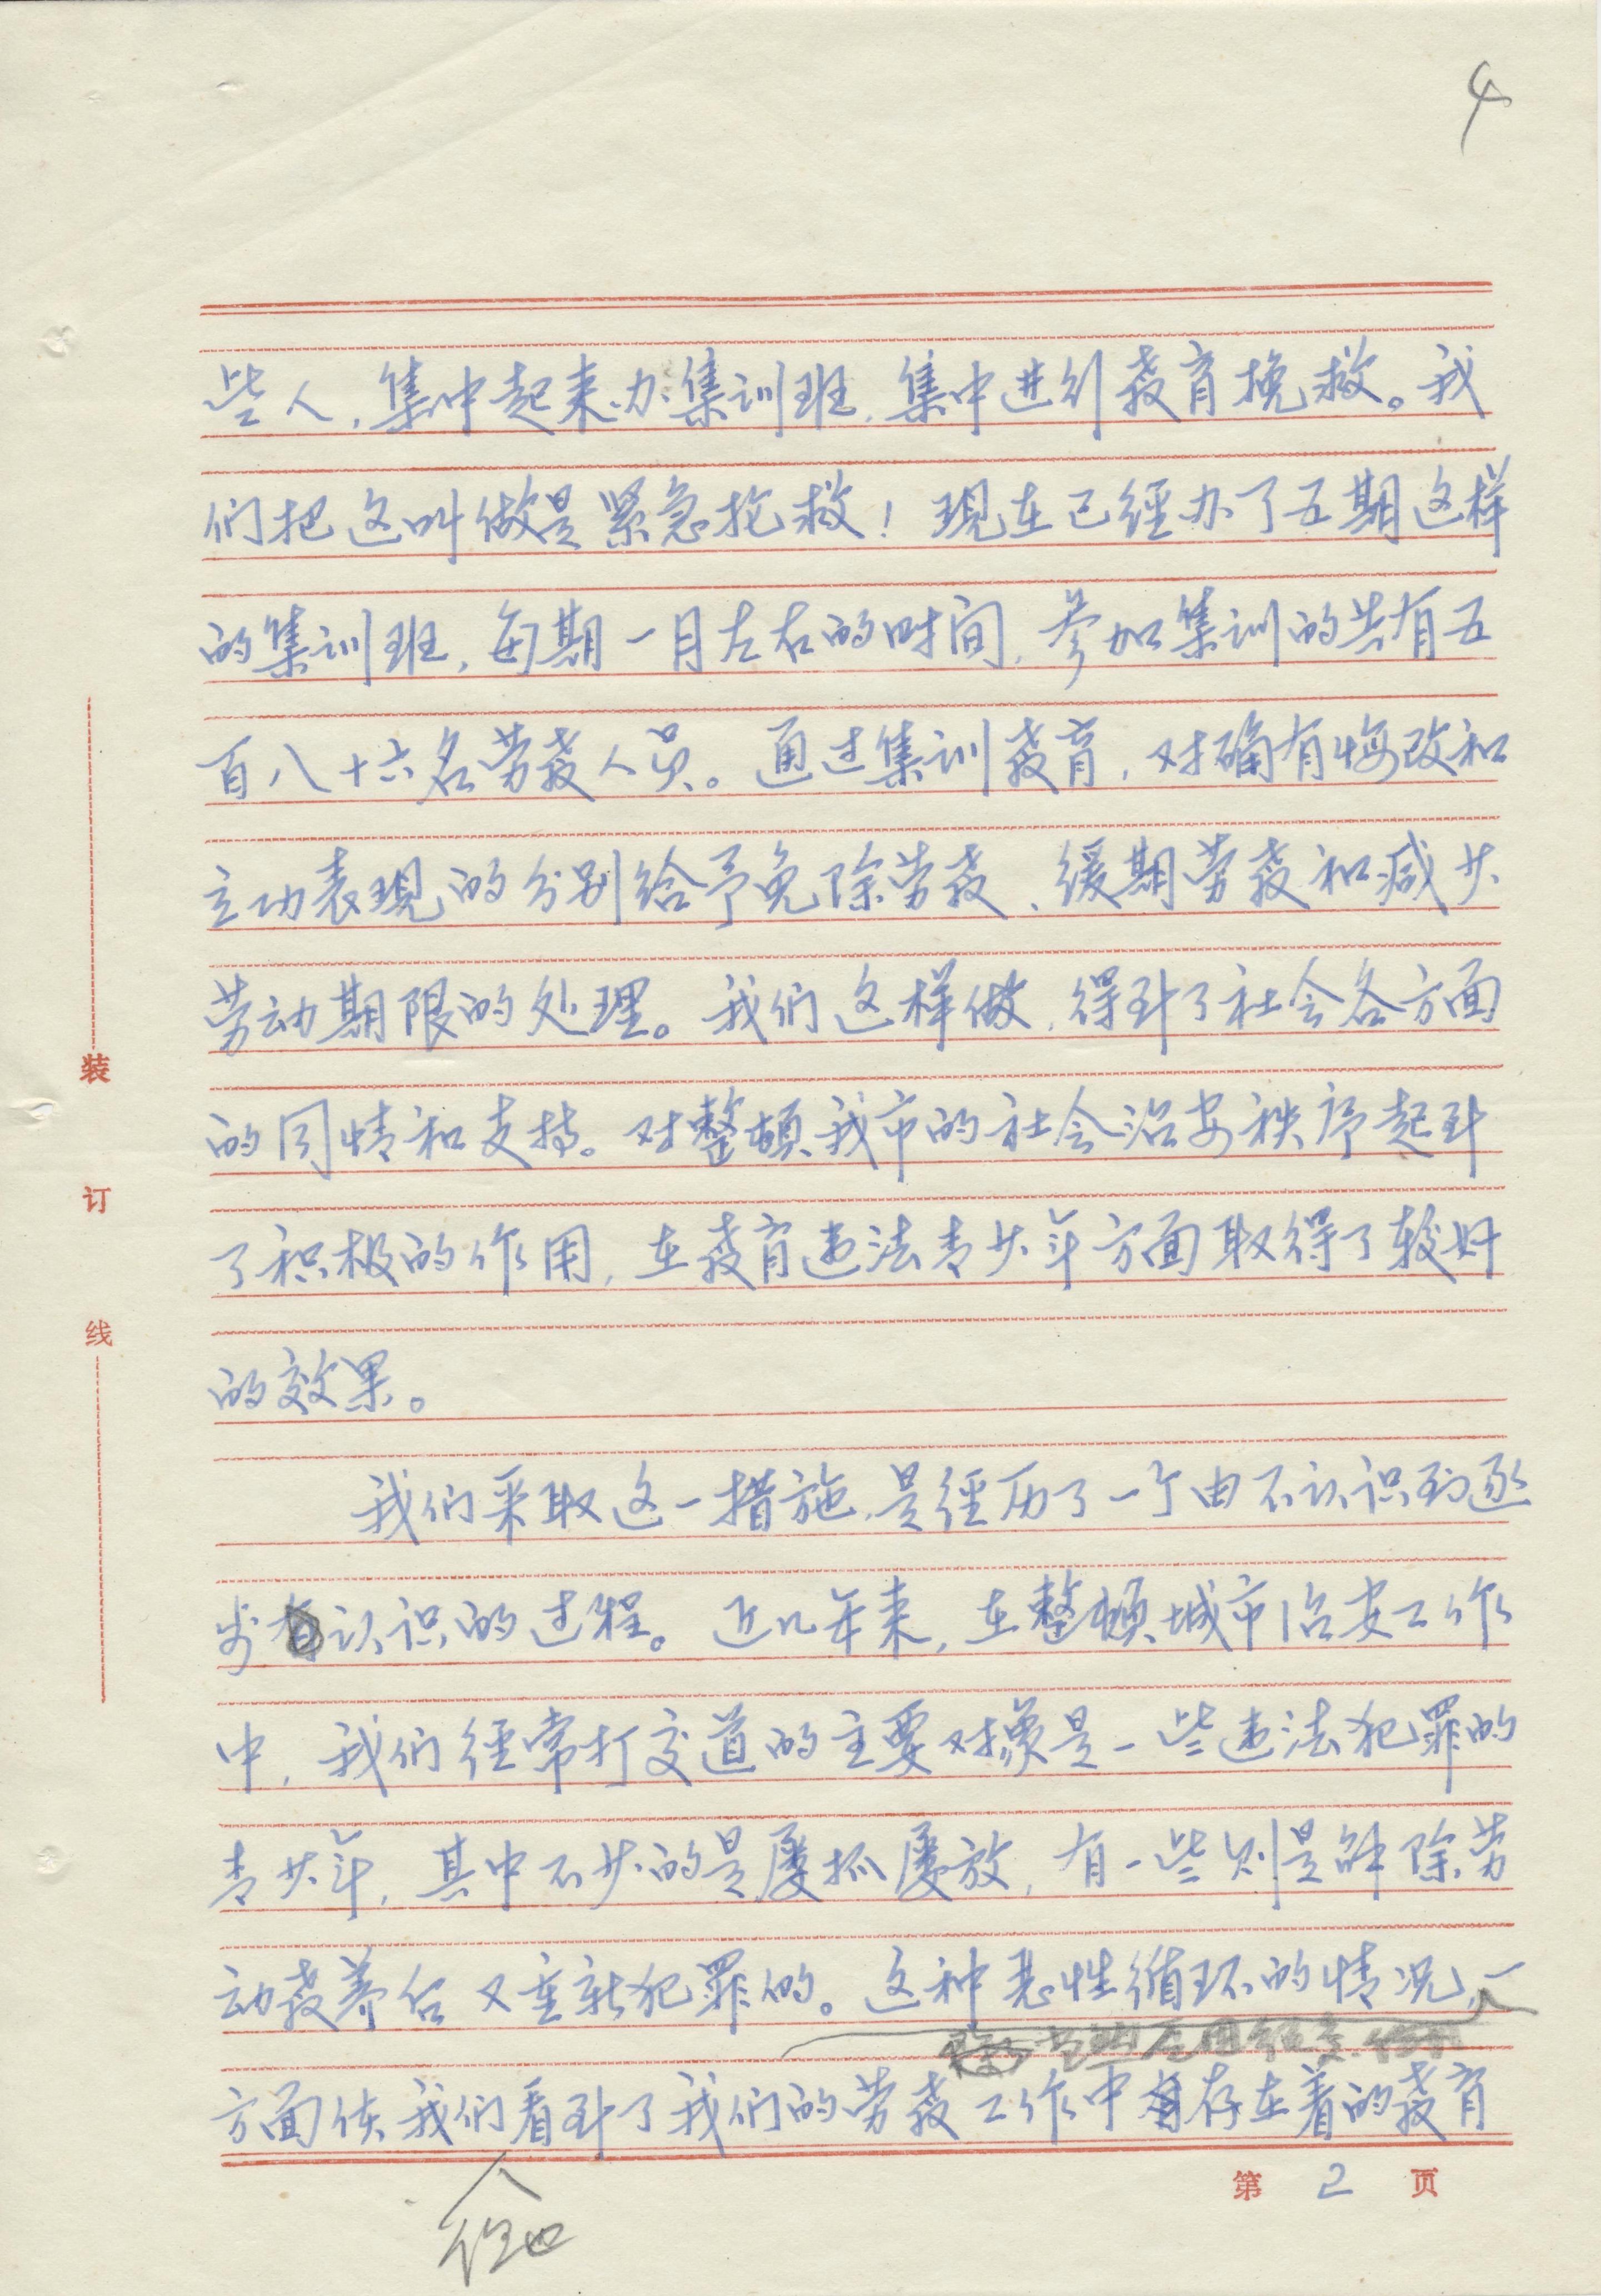 4
些人，集中起来办集训班，集中进行教育挽救。我
们把这叫做是紧急抢救！現在已經办了五期这样
的集训班，每期一月左右的时间，参加集训的共有五
百八十六名劳教人员。通过集训教育，对确有悔改和
立功表現的分别给予免除劳教、缓期劳教和减少
劳动期限的处理。我们这样做，得到了社会各方面
的同情和支持。对整顿我市的社会治安秩序起到
了积极的作用，在教育违法青少年方面取得了较好
的效果。
我们采取这一措施，是經历了一个由不认识到逐
步认识的过程。近几年来，在整顿城市治安工作
中，我们經常打交道的主要对象是一些违法犯罪的
青少年，其中不少的是屡抓屡放，有一些则是解除劳
动教养后又重新犯罪的。这种恶性循环的情况，一
方面使我们看到了我们的劳教工作中存在着的教育
第 2 页
装
订
线